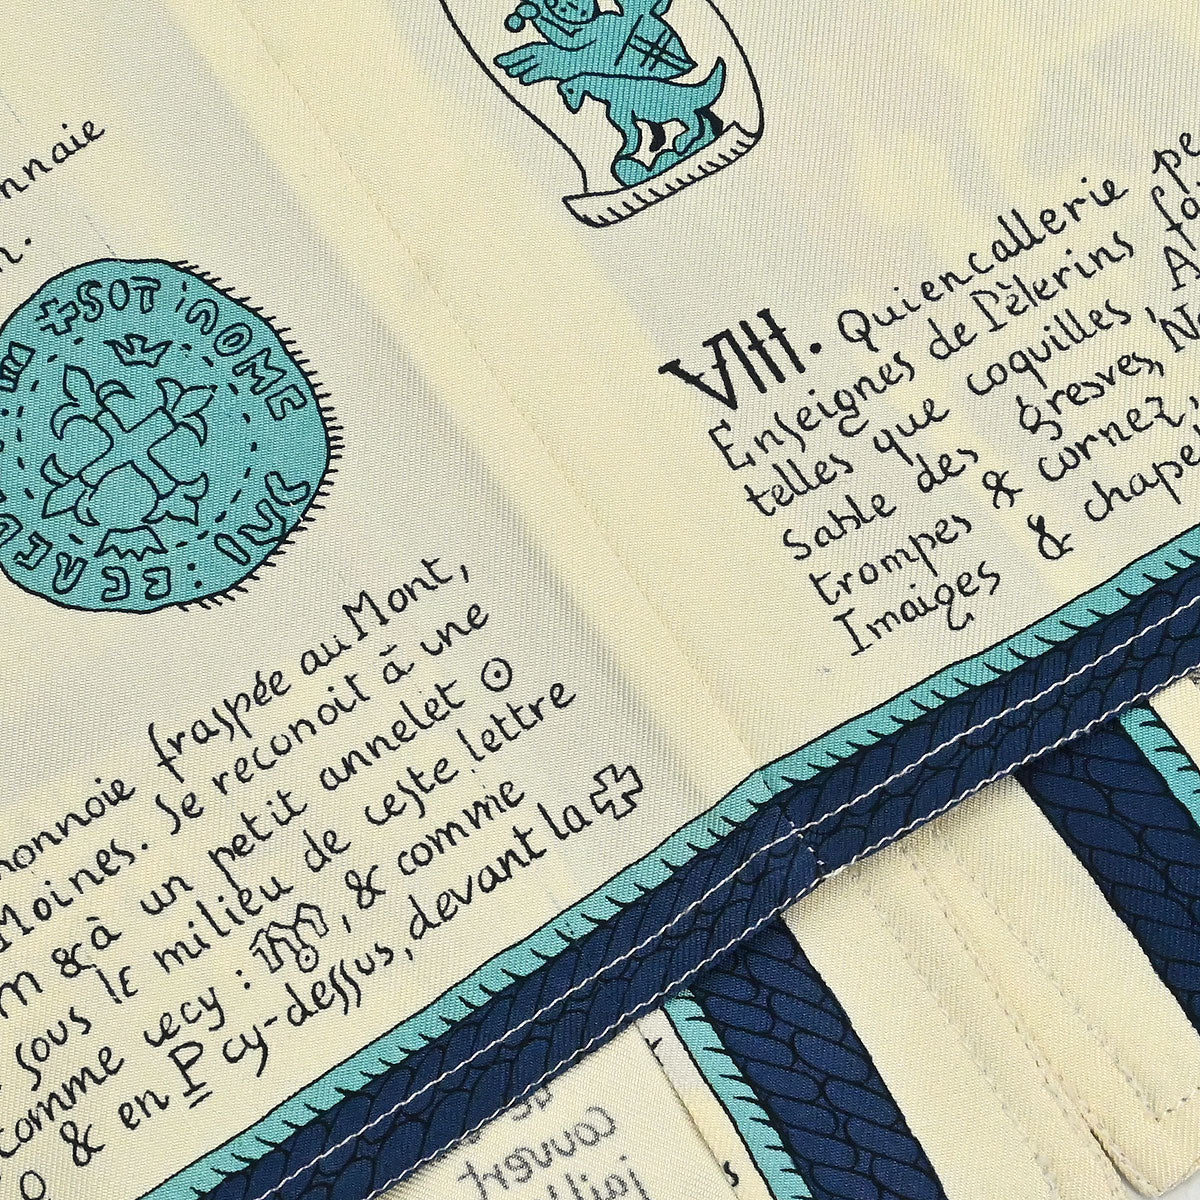 nnaie
n.
✚SOT iNOME
monnoie fraspée au Mont,
Moines. Se reconoit à une
m & à un petit annelet ⊙
sous le milieu de ceste lettre
comme cecy : m, & comme
& en P cy-dessus, devant la ✚
VIII. Quiencallerie pe
Enseignes de Pèlerins fo
telles que coquilles, A
Sable des gresves, N
trompes & cornez,
Imaiges & chape